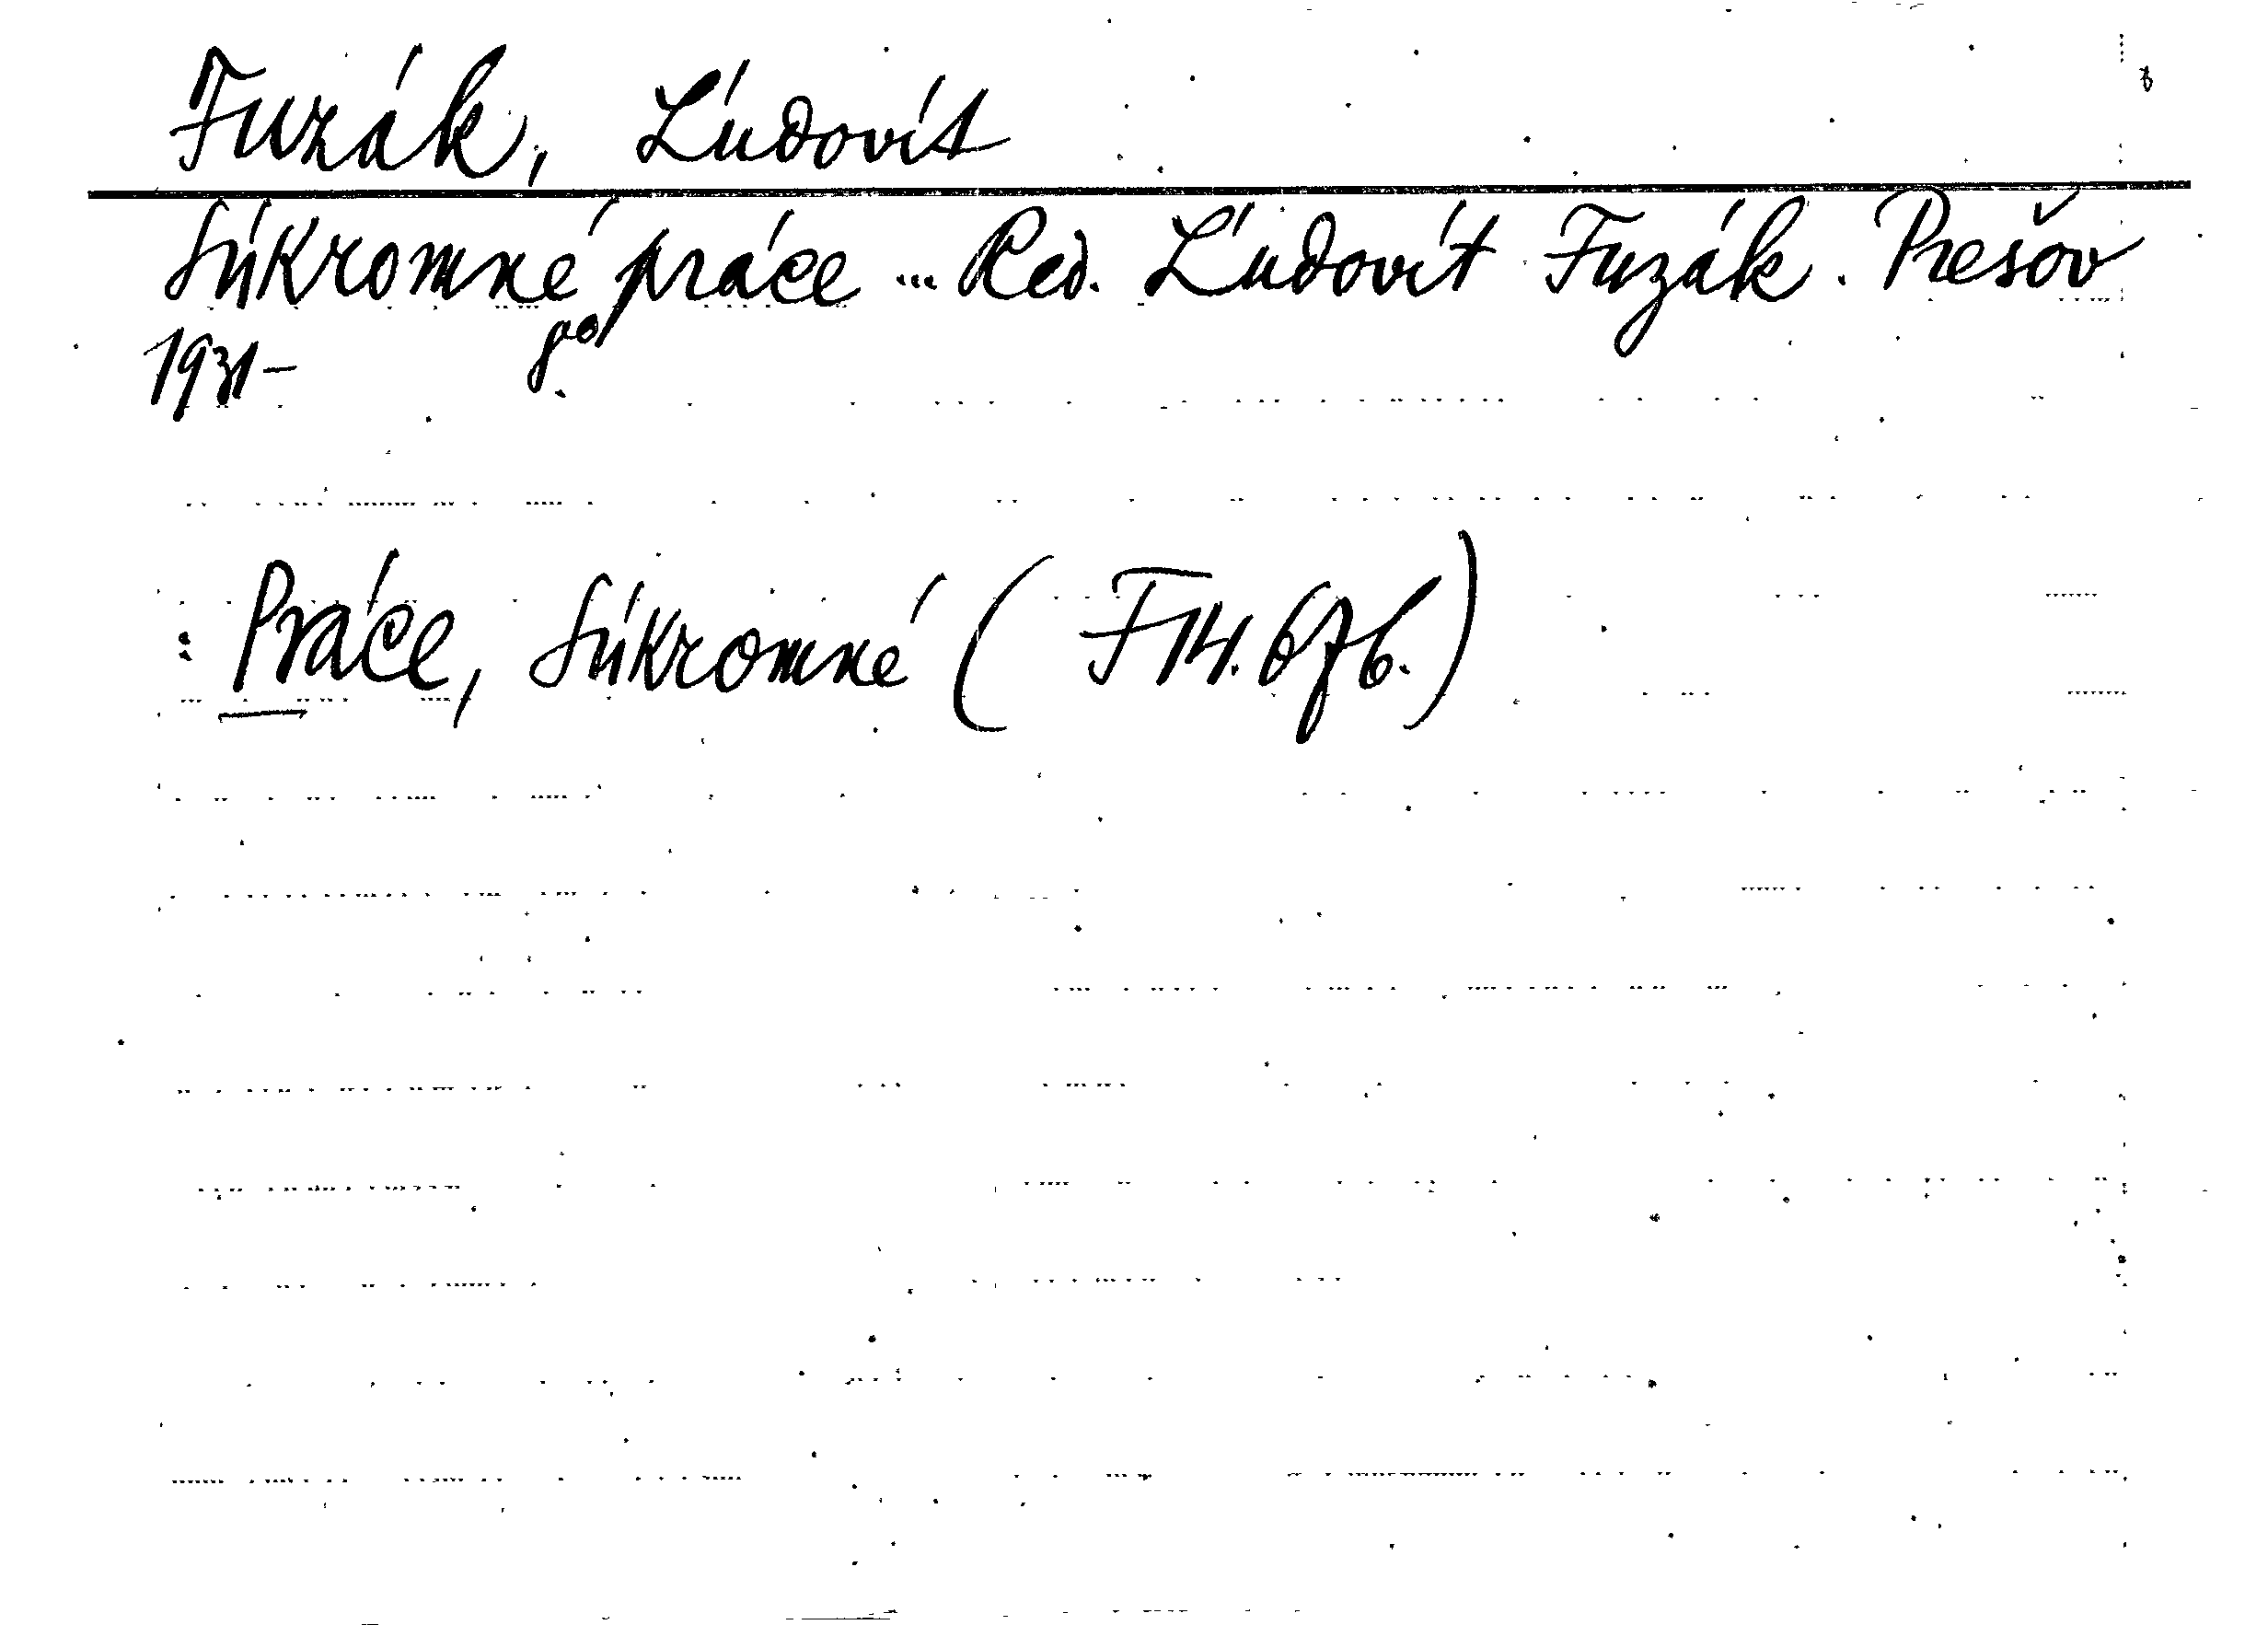 Fuzák, Ľudovít
Súkromné práce ... Red. Ľudovít Fuzák. Prešov
1931- 8°.
: Práce, Súkromné (F 14.676.)